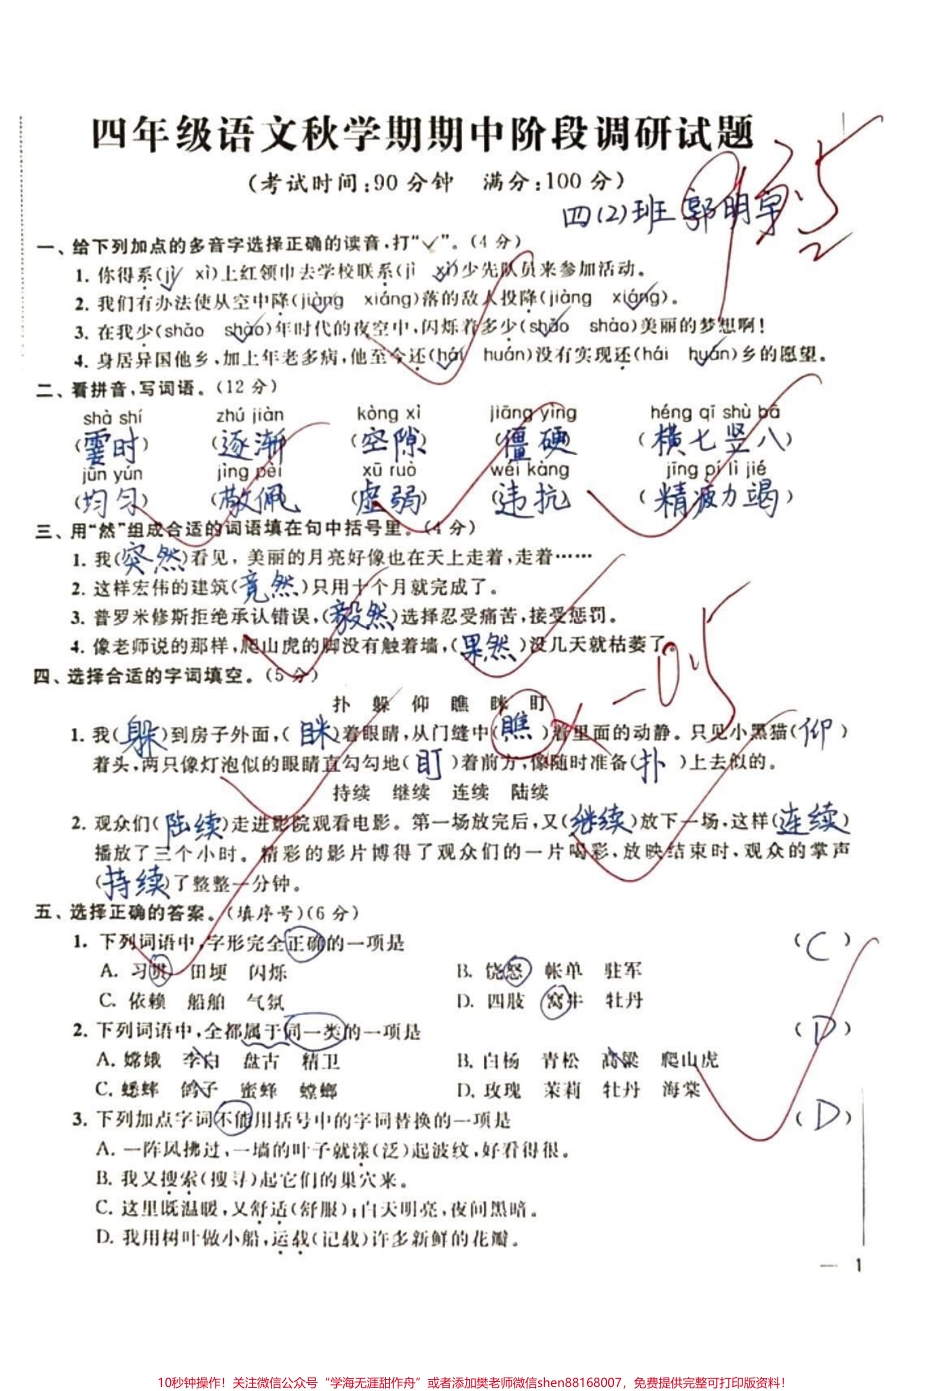 四年级语文秋学期期中阶段调研试题
(考试时间:90分钟 满分:100分)
四(2)班 郭明宇
一、给下列加点的多音字选择正确的读音,打“✓”。(4分)
1. 你得系(jì xì)上红领巾去学校联系(jì xì)少先队员来参加活动。
2. 我们有办法使从空中降(jiàng xiáng)落的敌人投降(jiàng xiáng)。
3. 在我少(shǎo shào)年时代的夜空中,闪烁着多少(shǎo shào)美丽的梦想啊!
4. 身居异国他乡,加上年老多病,他至今还(hái huán)没有实现还(hái huán)乡的愿望。
二、看拼音,写词语。(12分)
shà shí zhú jiàn kòng xì jiāng yìng héng qī shù bā
(霎时) (逐渐) (空隙) (僵硬) (横七竖八)
jūn yún jìng pèi xū ruò wéi kàng jīng pí lì jié
(均匀) (敬佩) (虚弱) (违抗) (精疲力竭)
三、用“然”组成合适的词语填在句中括号里。(4分)
1. 我(突然)看见,美丽的月亮好像也在天上走着,走着……
2. 这样宏伟的建筑(竟然)只用十个月就完成了。
3. 普罗米修斯拒绝承认错误,(毅然)选择忍受痛苦,接受惩罚。
4. 像老师说的那样,爬山虎的脚没有触着墙,(果然)没几天就枯萎了。
四、选择合适的字词填空。(5分)
-0.5
扑 躲 仰 瞧 眯 盯
1. 我(躲)到房子外面,(眯)着眼睛,从门缝中(瞧)着里面的动静。只见小黑猫(仰)
着头,两只像灯泡似的眼睛直勾勾地(盯)着前方,像随时准备(扑)上去似的。
持续 继续 连续 陆续
2. 观众们(陆续)走进影院观看电影。第一场放完后,又(继续)放下一场,这样(连续)
播放了三个小时。精彩的影片博得了观众们的一片喝彩,放映结束时,观众的掌声
(持续)了整整一分钟。
五、选择正确的答案。(填序号)(6分)
1. 下列词语中,字形完全正确的一项是 (C)
A. 习贯 田埂 闪烁 B. 饶怒 帐单 驻军
C. 依赖 船舶 气氛 D. 四肢 窝牛 牡丹
2. 下列词语中,全都属于同一类的一项是 (D)
A. 嫦娥 李白 盘古 精卫 B. 白杨 青松 高粱 爬山虎
C. 蟋蟀 鸽子 蜜蜂 螳螂 D. 玫瑰 茉莉 牡丹 海棠
3. 下列加点字词不能用括号中的字词替换的一项是 (D)
A. 一阵风拂过,一墙的叶子就漾(泛)起波纹,好看得很。
B. 我又搜索(搜寻)起它们的巢穴来。
C. 这里既温暖,又舒适(舒服);白天明亮,夜间黑暗。
D. 我用树叶做小船,运载(记载)许多新鲜的花瓣。
— 1
10秒钟操作!关注微信公众号“学海无涯甜作舟”或者添加樊老师微信shen88168007,免费提供完整可打印版资料!